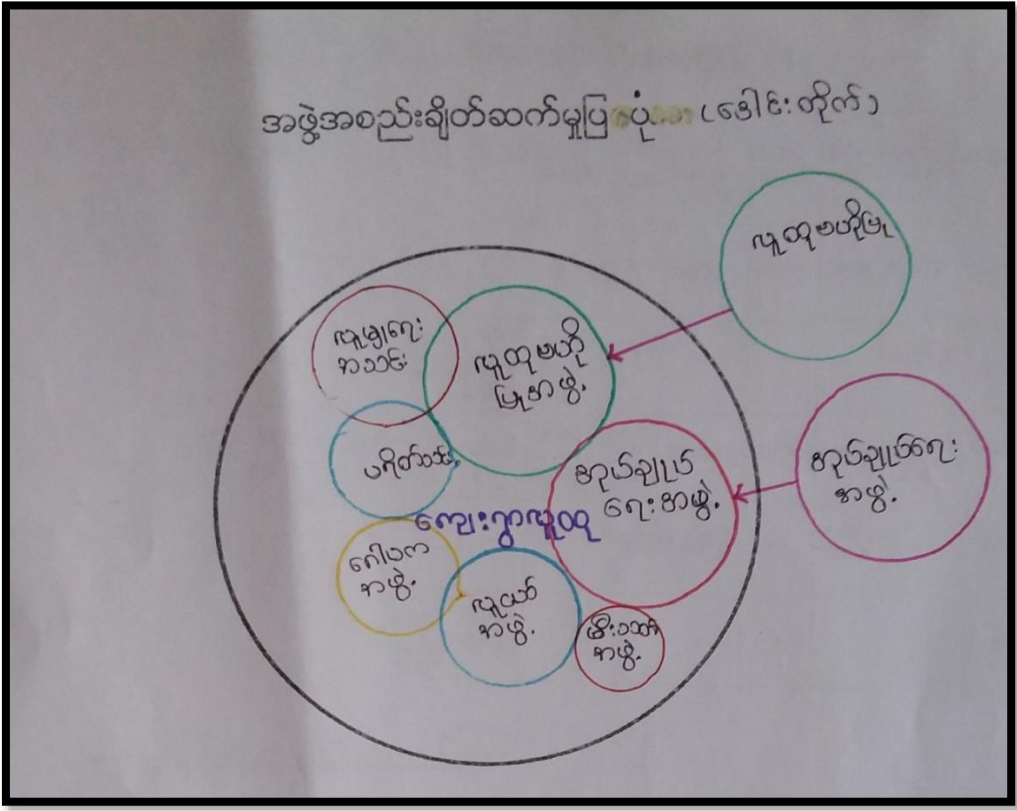 အဖွဲ့အစည်းချိတ်ဆက်မှုပြပုံ (ဒေါင်းတိုက်)
လူထုဗဟိုပြု
လူမှုရေး
အသင်း
လူထုဗဟို
ပြုအဖွဲ့
ပရိတ်သင်း
အုပ်ချုပ်
ရေးအဖွဲ့
အုပ်ချုပ်ရေး
အဖွဲ့
ကျေးရွာလူထု
ဂေါပက
အဖွဲ့
လူငယ်
အဖွဲ့
မီးသတ်
အဖွဲ့